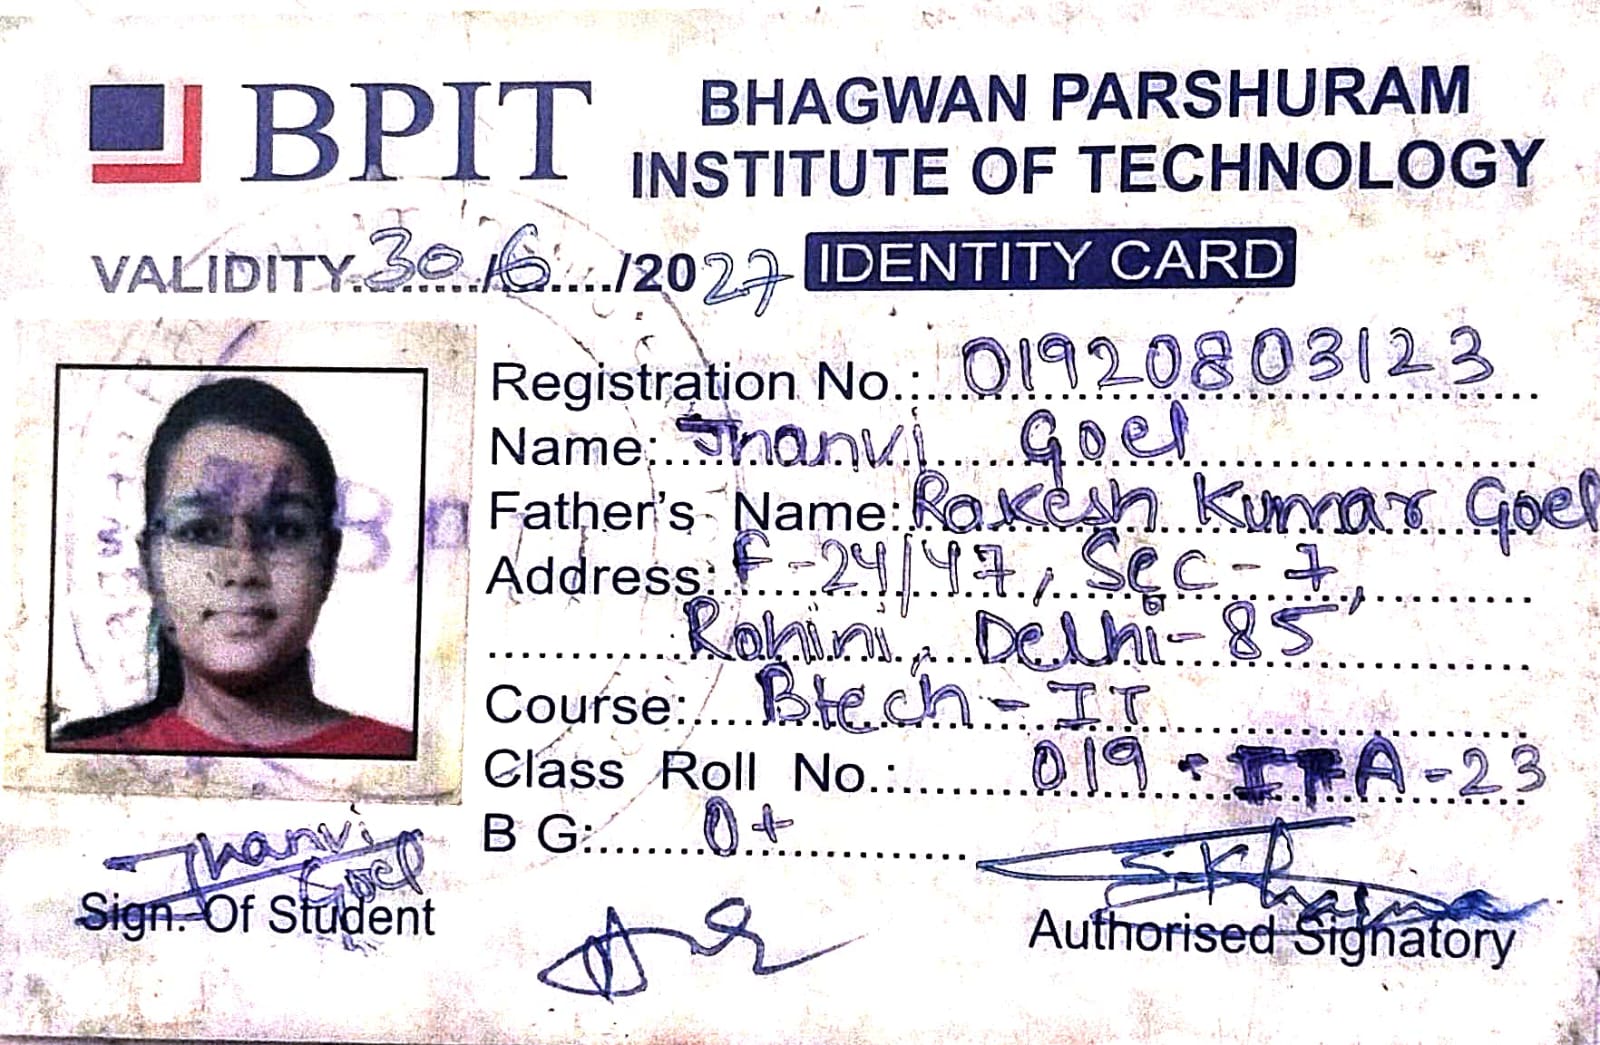 BPIT
BHAGWAN PARSHURAM
INSTITUTE OF TECHNOLOGY
VALIDITY 30/6/2027
IDENTITY CARD
Registration No.: 01920803123
Name: Jhanvi Goel
Father's Name: Rakesh Kumar Goel
Address: F-24/47, Sec-7,
Rohini, Delhi-85
Course: Btech-IT
Class Roll No.: 019-ITA-23
B G: O+
Jhanvi
Goel
Sign. Of Student
Authorised Signatory